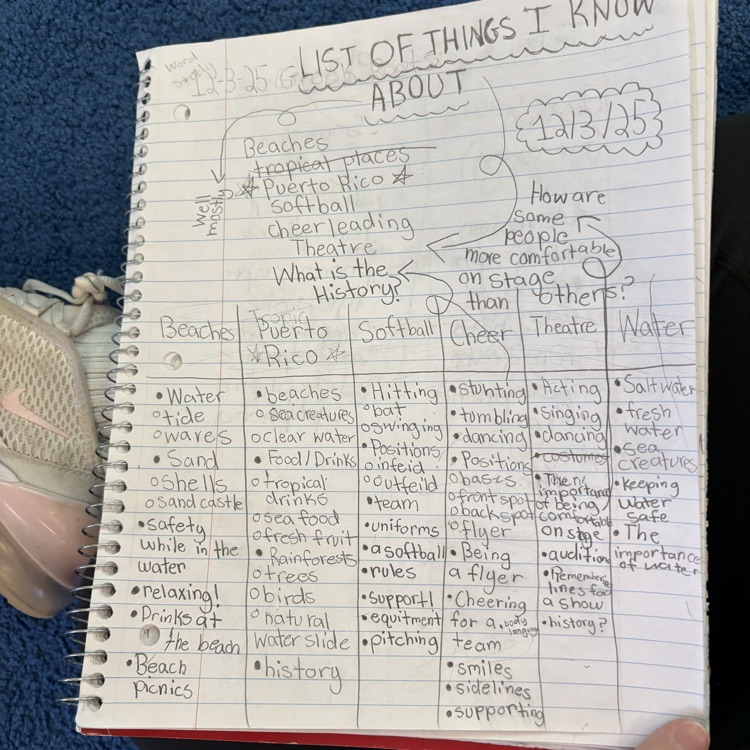 LIST OF THINGS I KNOW
ABOUT
12-3-25
12/3/25
Beaches
tropical places
Puerto Rico
softball
cheerleading
Theatre
Well
mostly
What is the
History?
How are
some
people
more comfortable
on stage
than others?
Beaches
• Water
○ tide
○ waves
• Sand
○ shells
○ sand castle
• safety
while in the
water
• relaxing!
• Drinks at
the beach
• Beach
picnics
Puerto
Rico
• beaches
○ sea creatures
○ clear water
• Food/Drinks
○ tropical
drinks
○ sea food
○ fresh fruit
• Rainforests
○ trees
○ birds
○ natural
water slide
• history
Softball
• Hitting
○ bat
○ swinging
• Positions
○ infeid
○ outfeild
• team
• uniforms
• a softball
• rules
• support!
• equitment
• pitching
Cheer
• stunting
• tumbling
• dancing
• Positions
○ bases
○ front spot
○ back spot
○ flyer
• Being
a flyer
• Cheering
for a
team
• smiles
• sidelines
• supporting
Theatre
• Acting
• singing
• dancing
• costumes
• The
importanc
of being
comfortable
on stge
• audition
• Remembering
lines for
a show
• body
language
• history?
Water
• Salt water
• fresh
water
• sea
creatures
• keeping
water
safe
• The
importance
of water